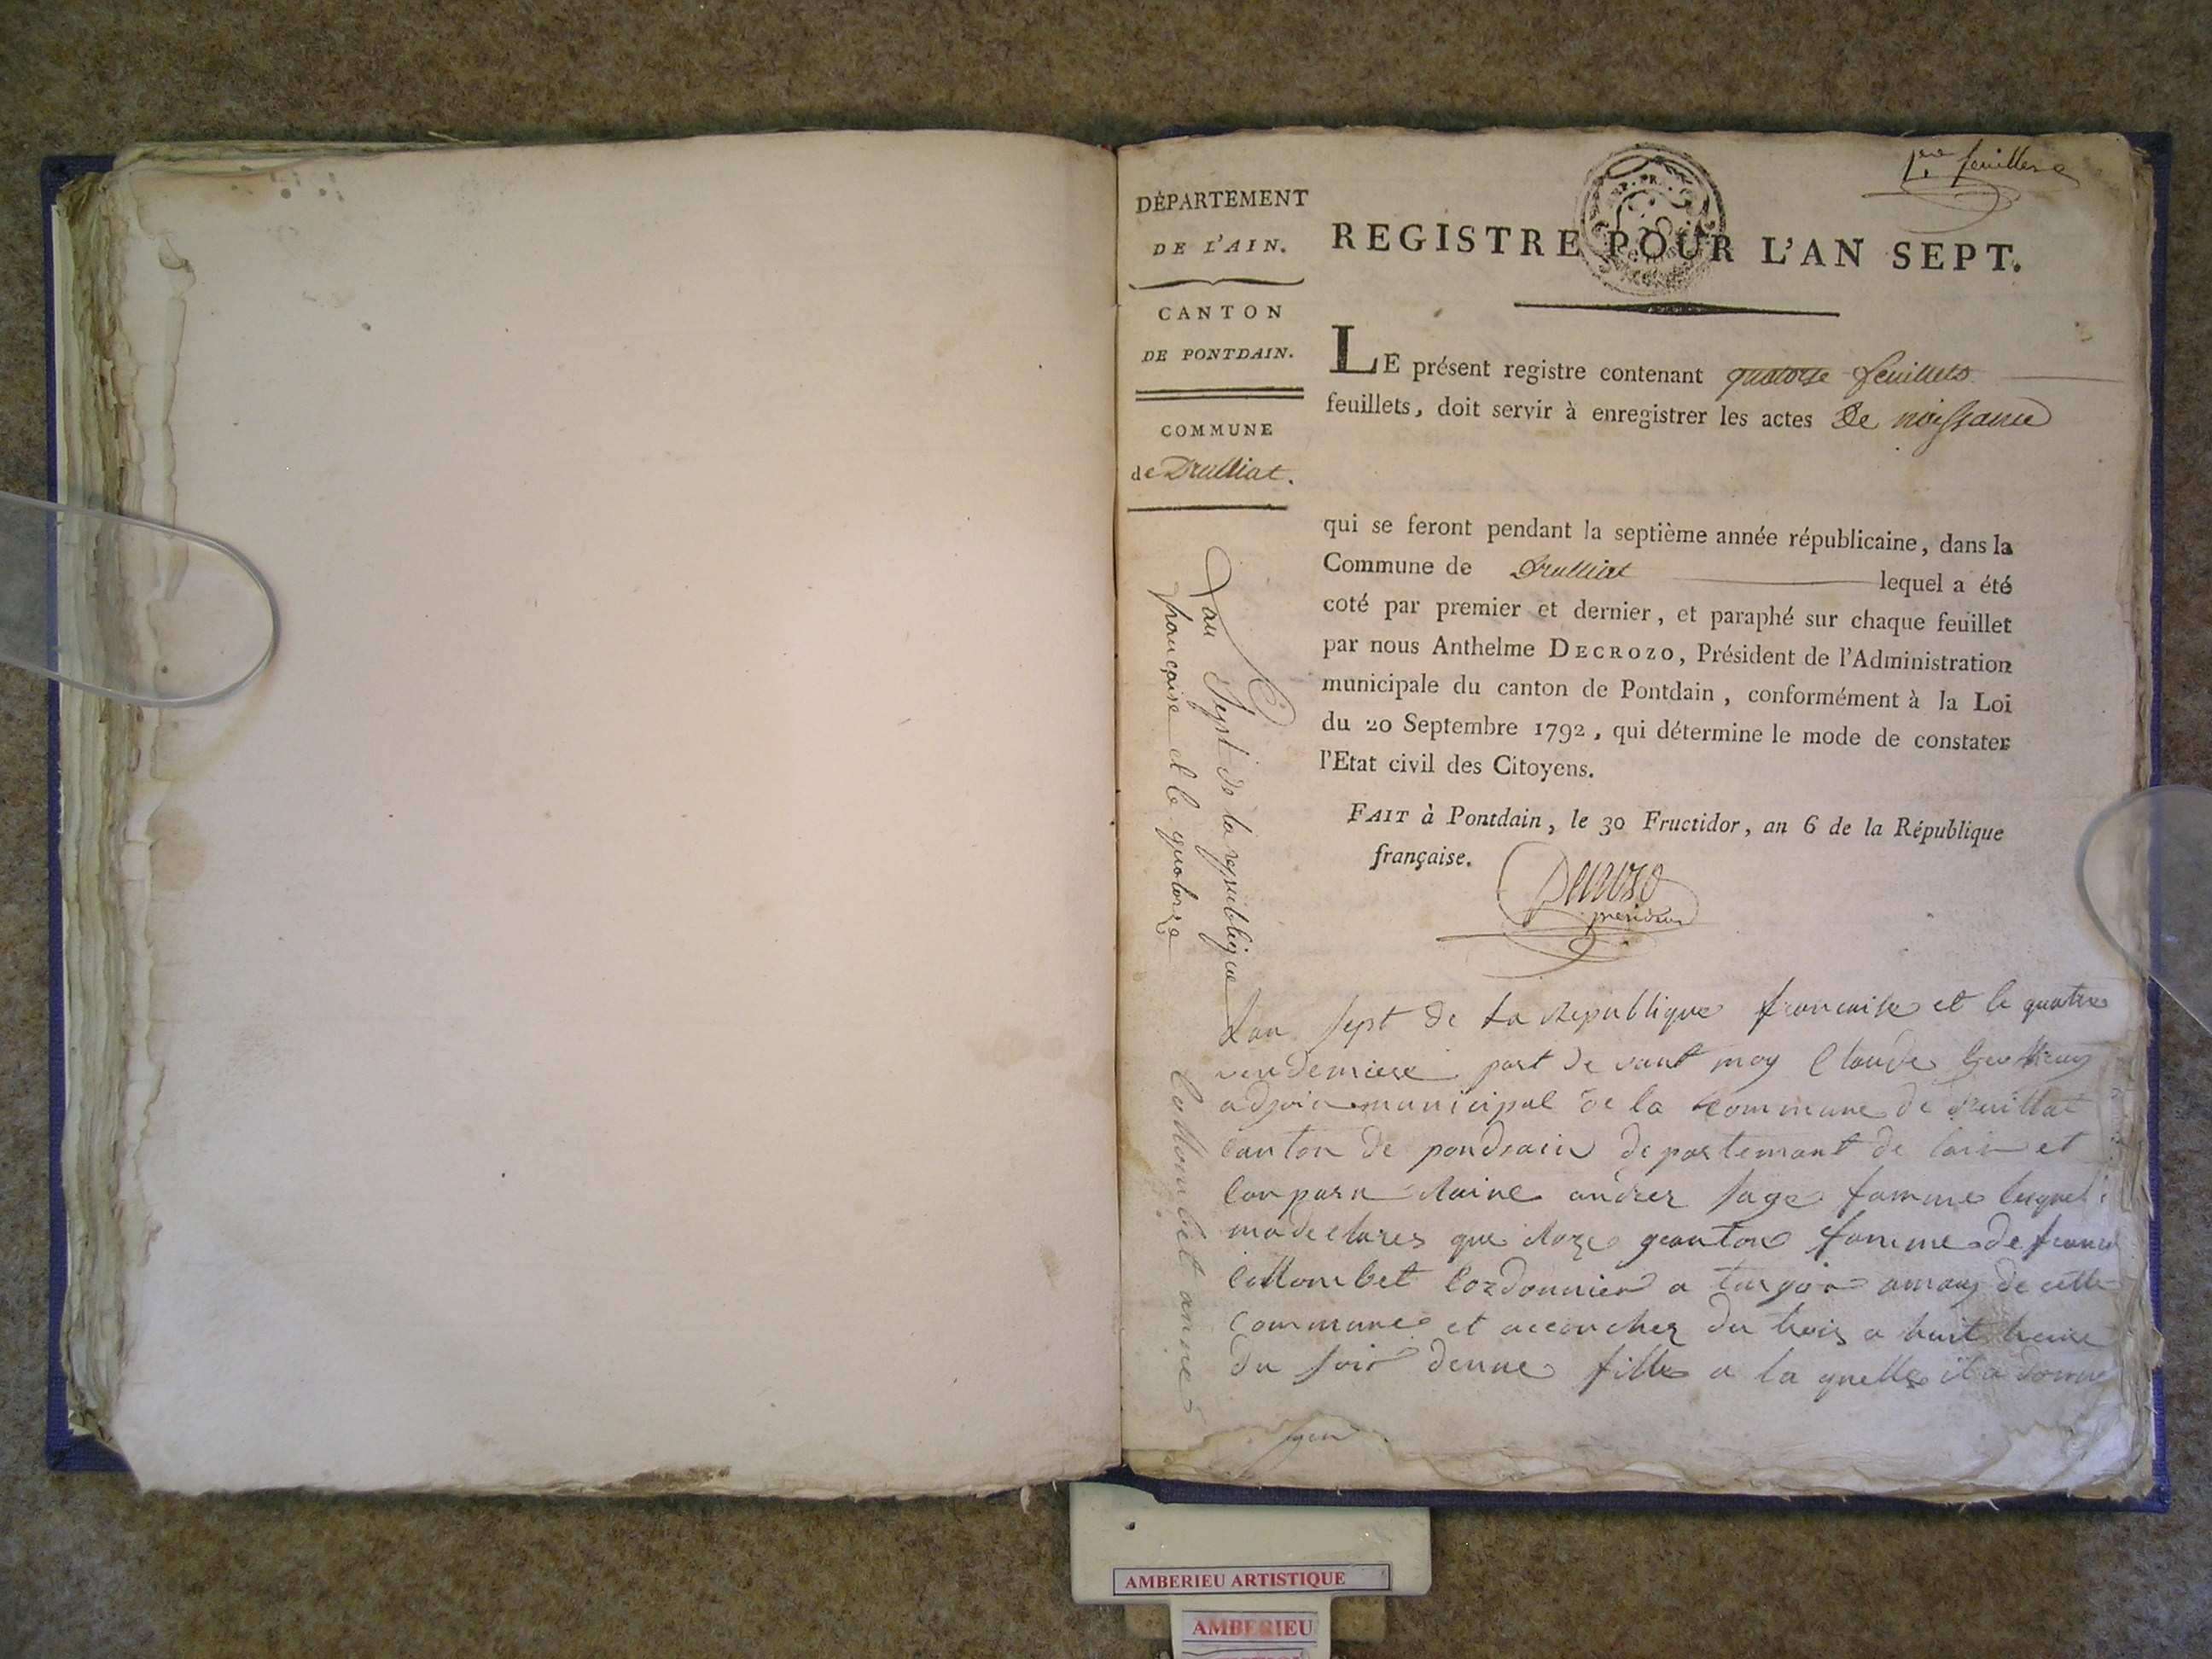 1ere feuillete
DÉPARTEMENT
DE L'AIN.
CANTON
DE PONTDAIN.
COMMUNE
de Drulliat.
REGISTRE POUR L'AN SEPT.
LE présent registre contenant quatorse feuillets
feuillets, doit servir à enregistrer les actes de naissance
qui se feront pendant la septième année républicaine, dans la
Commune de Drulliat lequel a été
coté par premier et dernier, et paraphé sur chaque feuillet
par nous Anthelme DECROZO, Président de l'Administration
municipale du canton de Pontdain, conformément à la Loi
du 20 Septembre 1792, qui détermine le mode de constater
l'Etat civil des Citoyens.
FAIT à Pontdain, le 30 Fructidor, an 6 de la République
française.
Decrozo
president
Lan Sept de la republique
francaise et le quatorze
Lan sept de la Republique francaise et le quatre
vendemiere part de vant moy Claude
adjoin municipal de la commune de druillat
canton de pondain departemant de lain et
conparu andrez sage famme
ma declarez que Roze famme de
collombet Cordonnier a de cette
commune et accouchez du trois a huit heure
du soir denne fille a la quelle il a donne
Collombet anne
AMBERIEU ARTISTIQUE
AMBERIEU